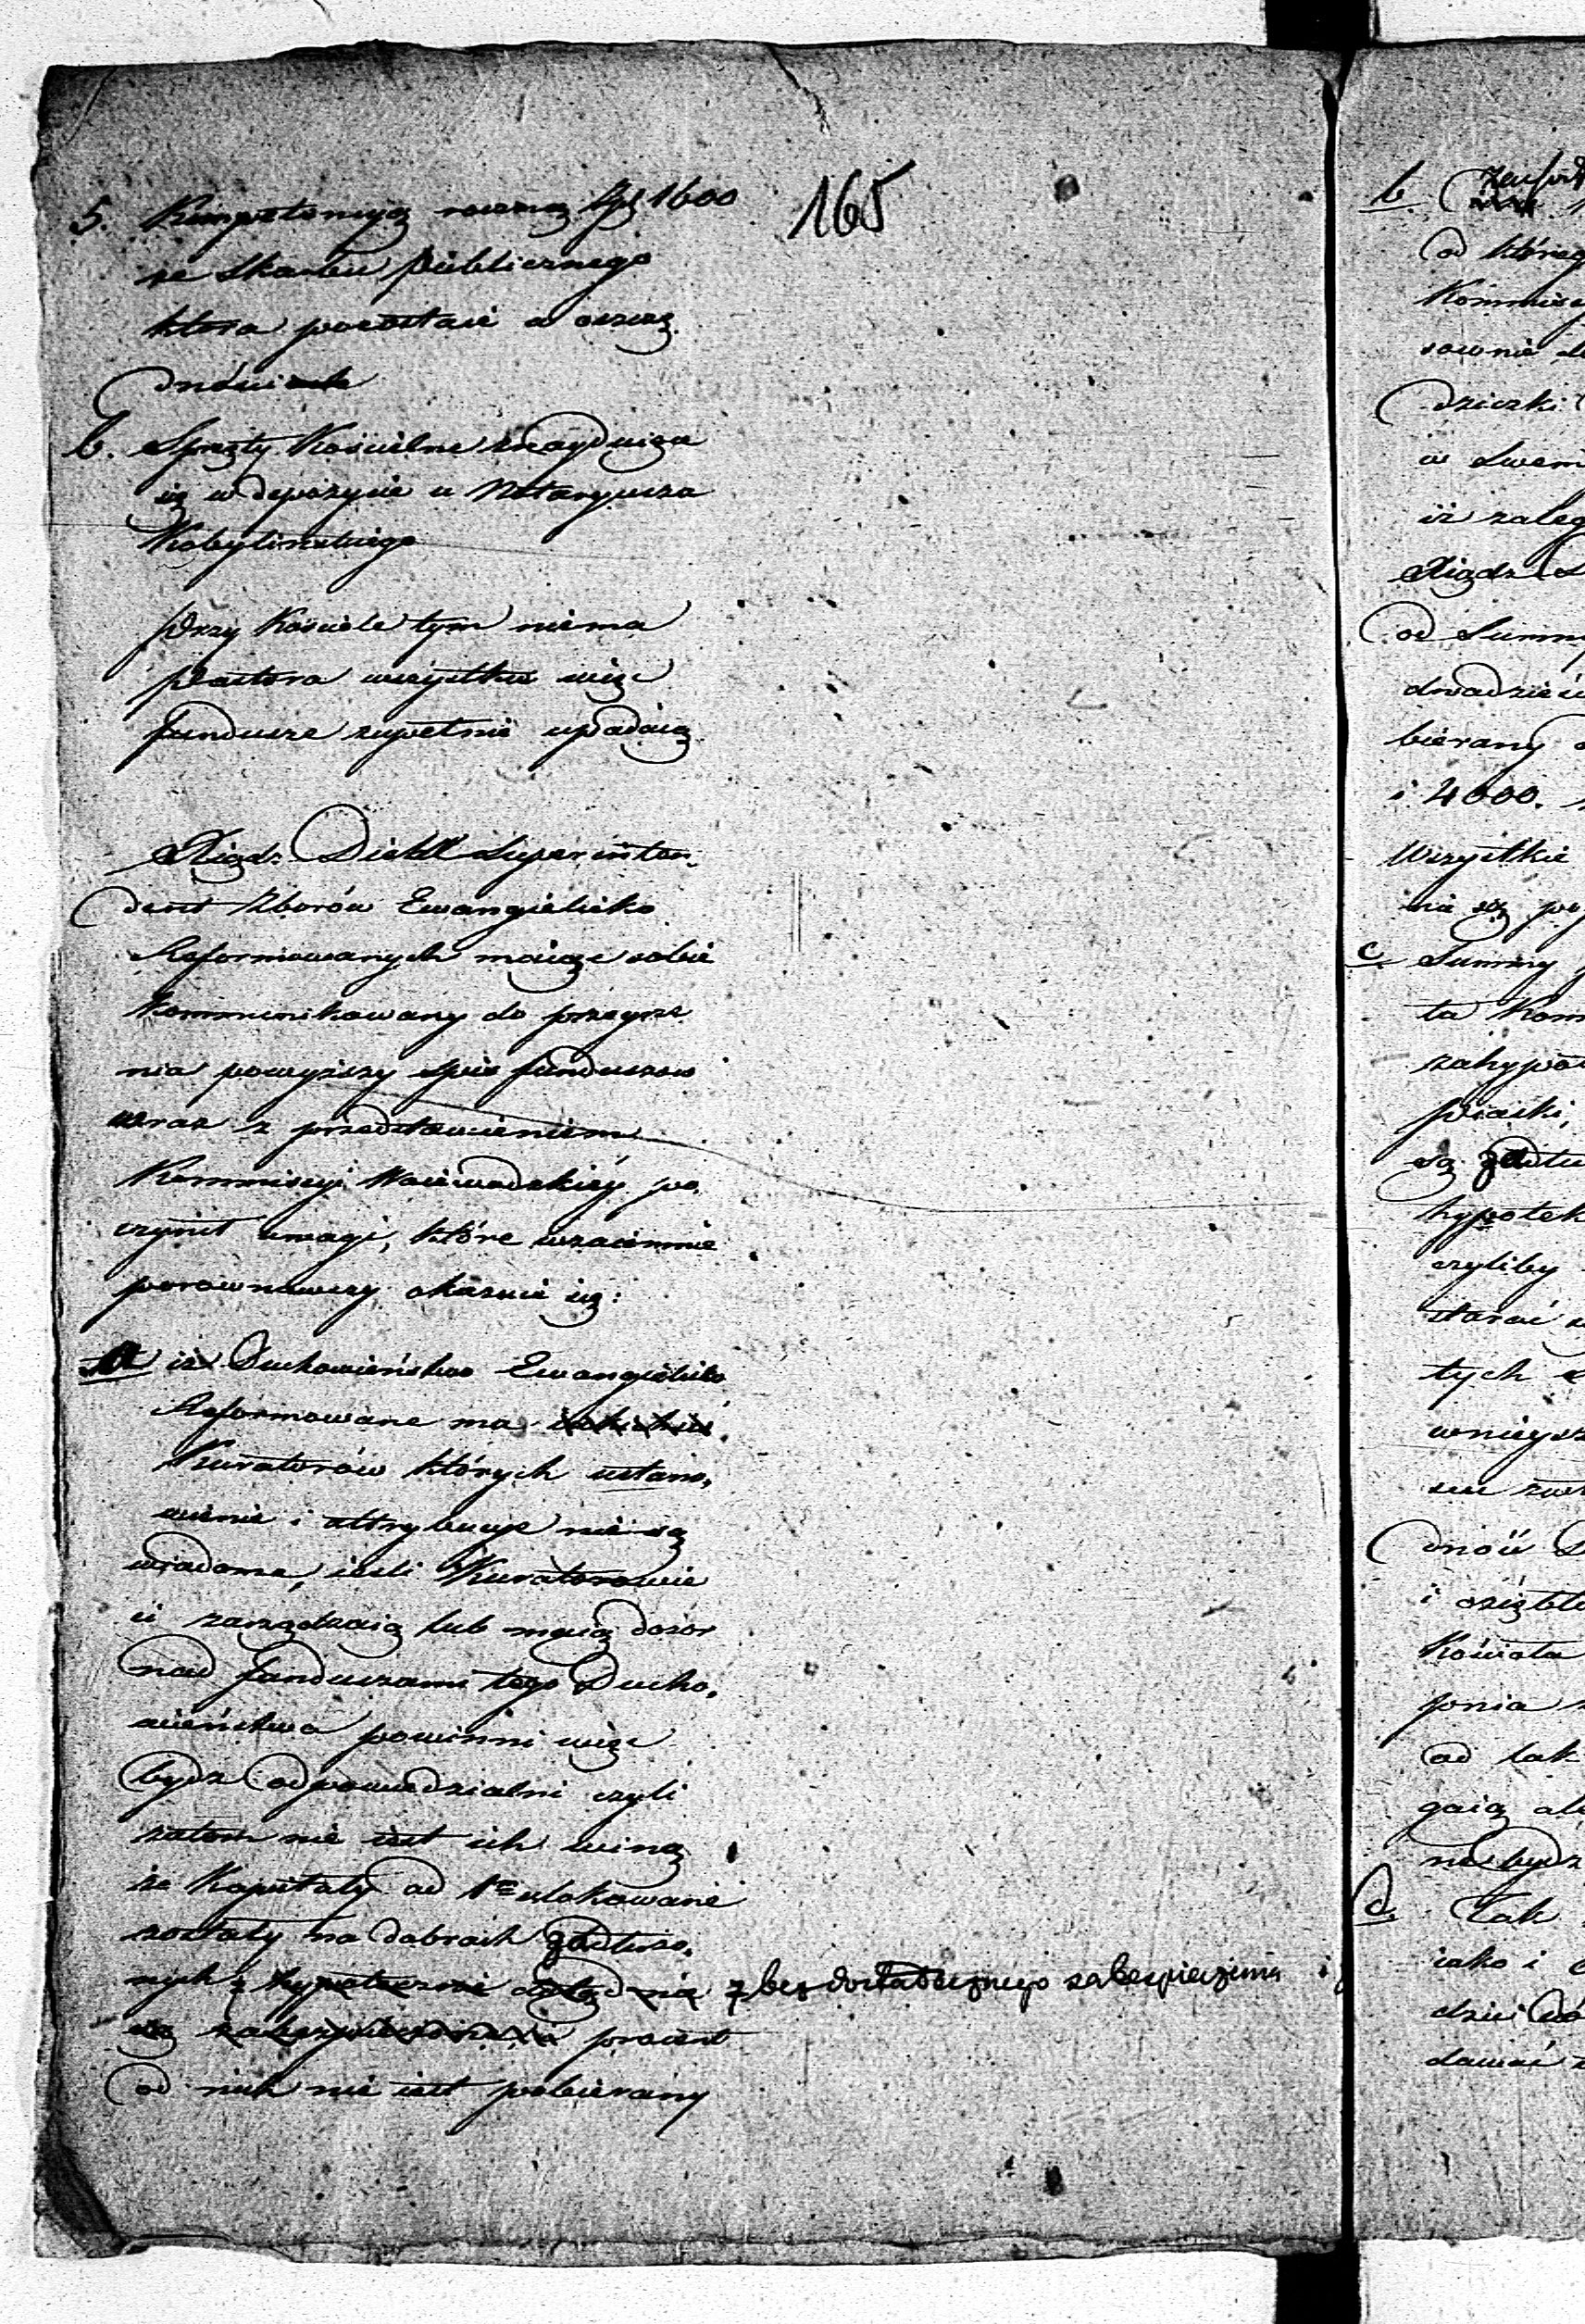 165
5. Kompetencyą roczną Zł 1600
ze Skarbu Publicznego
która pozostaie w oszczę
dności
6. Sprzęty Kościelne znayduią
się w depozycie u Notaryusza
Kobylińskiego
Przy Kościele tym niema
Pastora wszystkie więc
fundusze zupełnie upadaią
Xiądz Diehl Superinten„
dent Zborów Ewangielicko
Reformowanych maiąc sobie
kommunikowany do przeyrze
nia powyższy spis funduszow
wraz z przedstawieniem
Kommissyi Woiewodzkiéy po„
czynił uwagi, które wzaiemnie
porównawszy okazuie się:
a iż Duchowieństwo Ewangielicko
Reformowane ma
Kuratorów których ustano„
wienie i attrybucye nie są
wiadome, ieśli Kuratorowie
ci zarządzaią lub maią dozór
nad funduszami tego Ducho„
wieństwa powinni więc
bydź odpowiedzialni czyli
zatem nie iest ich winą
że Kapitały ad 1e ulokowane
zostały na dobrach zadłużo„
nych z bez dostatecznego zabezpieczenia i
procent
od nich nie iest pobierany
b.
od które
Kommis
sownie
dziczki
w
iż zaleg
Xiądz D
od Summ
dwadzieś
bierany
i 4000.
Wszystkie
nia są po
c Summy
ta Kom
zahypo
Piaski,
są zadłu
hypotek
czyliby
starać
tych
wnieysz
dnoś
i
Kościoła
ponia
od tak
gaią al
na bydź
d. Tak
iako i
dawać